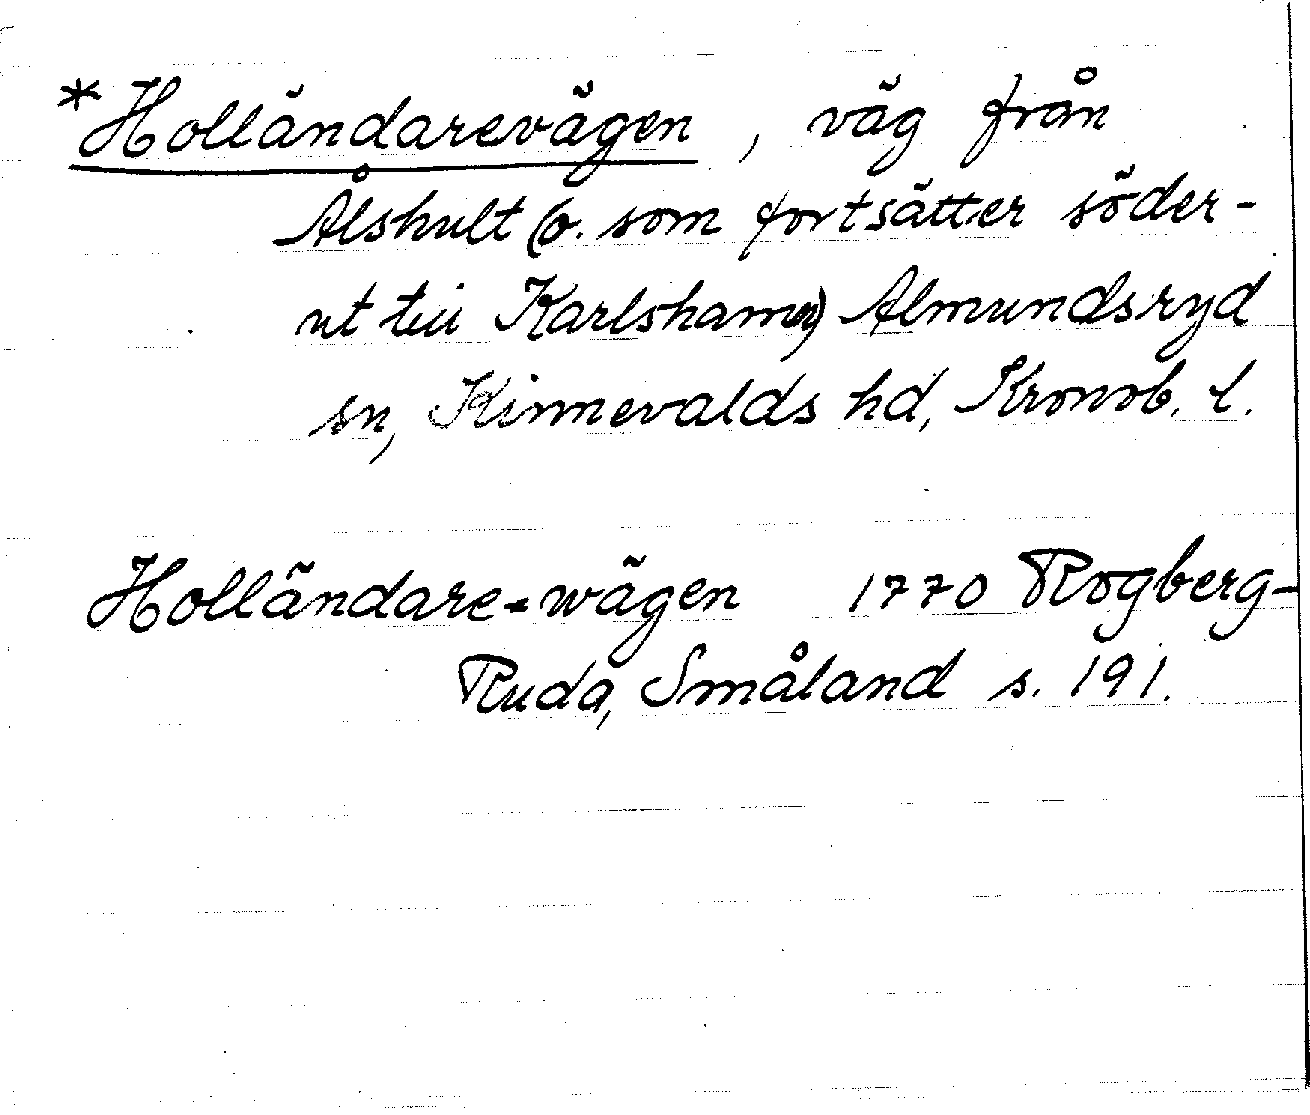 *Holländarevägen, väg från
Ålshult (o. som fortsätter söder-
ut till Karlshamn) Almundsryd
sn, Kinnevalds hd, Kronob. l.
Holländare-wägen 1770 Rogberg-
Ruda, Småland s. 191.